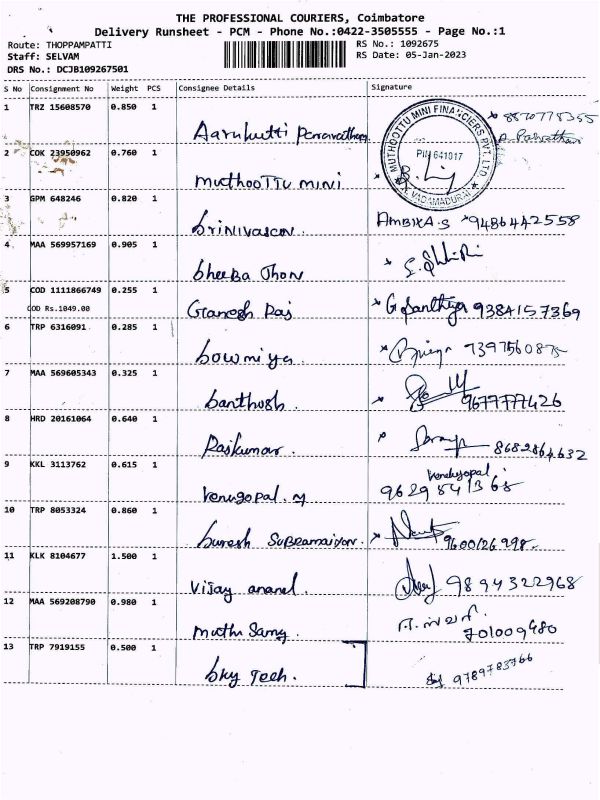 THE PROFESSIONAL COURIERS, Coimbatore
Delivery Runsheet - PCM - Phone No.:0422-3505555 - Page No.:1
Route: THOPPAMPATTI
RS No.: 1092675
Staff: SELVAM
RS Date: 05-Jan-2023
DRS No.: DCJB109267501
S No Consignment No Weight PCS Consignee Details Signature
1 TRZ 15608570 0.850 1
MUTHOOTTU MINI FINANCIERS PVT. LTD
PIN 641017
VADAMADURAI
2 COK 23950962 0.760 1
muthooTTu mini
3 GPM 648246 0.820 1
Srinivasan AMBIKA.S 9486442558
4 MAA 569957169 0.905 1
Sheeba Jhon
5 COD 1111866749 0.255 1
COD Rs.1049.00
Ganesh Raj G Santhiya 9384157369
6 TRP 6316091 0.285 1
Sowmiya
7 MAA 569605343 0.325 1
Santhosh 9677777426
8 HRD 20161064 0.640 1
Rajkumar 8682864632
9 KKL 3113762 0.615 1
Venugopal
Venugopal. M 9629841368
10 TRP 8053324 0.860 1
Suresh Subramaiyan. 9600126998
11 KLK 8104677 1.500 1
Vijay anand. 9894322968
12 MAA 569208790 0.980 1
Muthu Samy. 701009480
13 TRP 7919155 0.500 1
Sky Tech. 9789783766